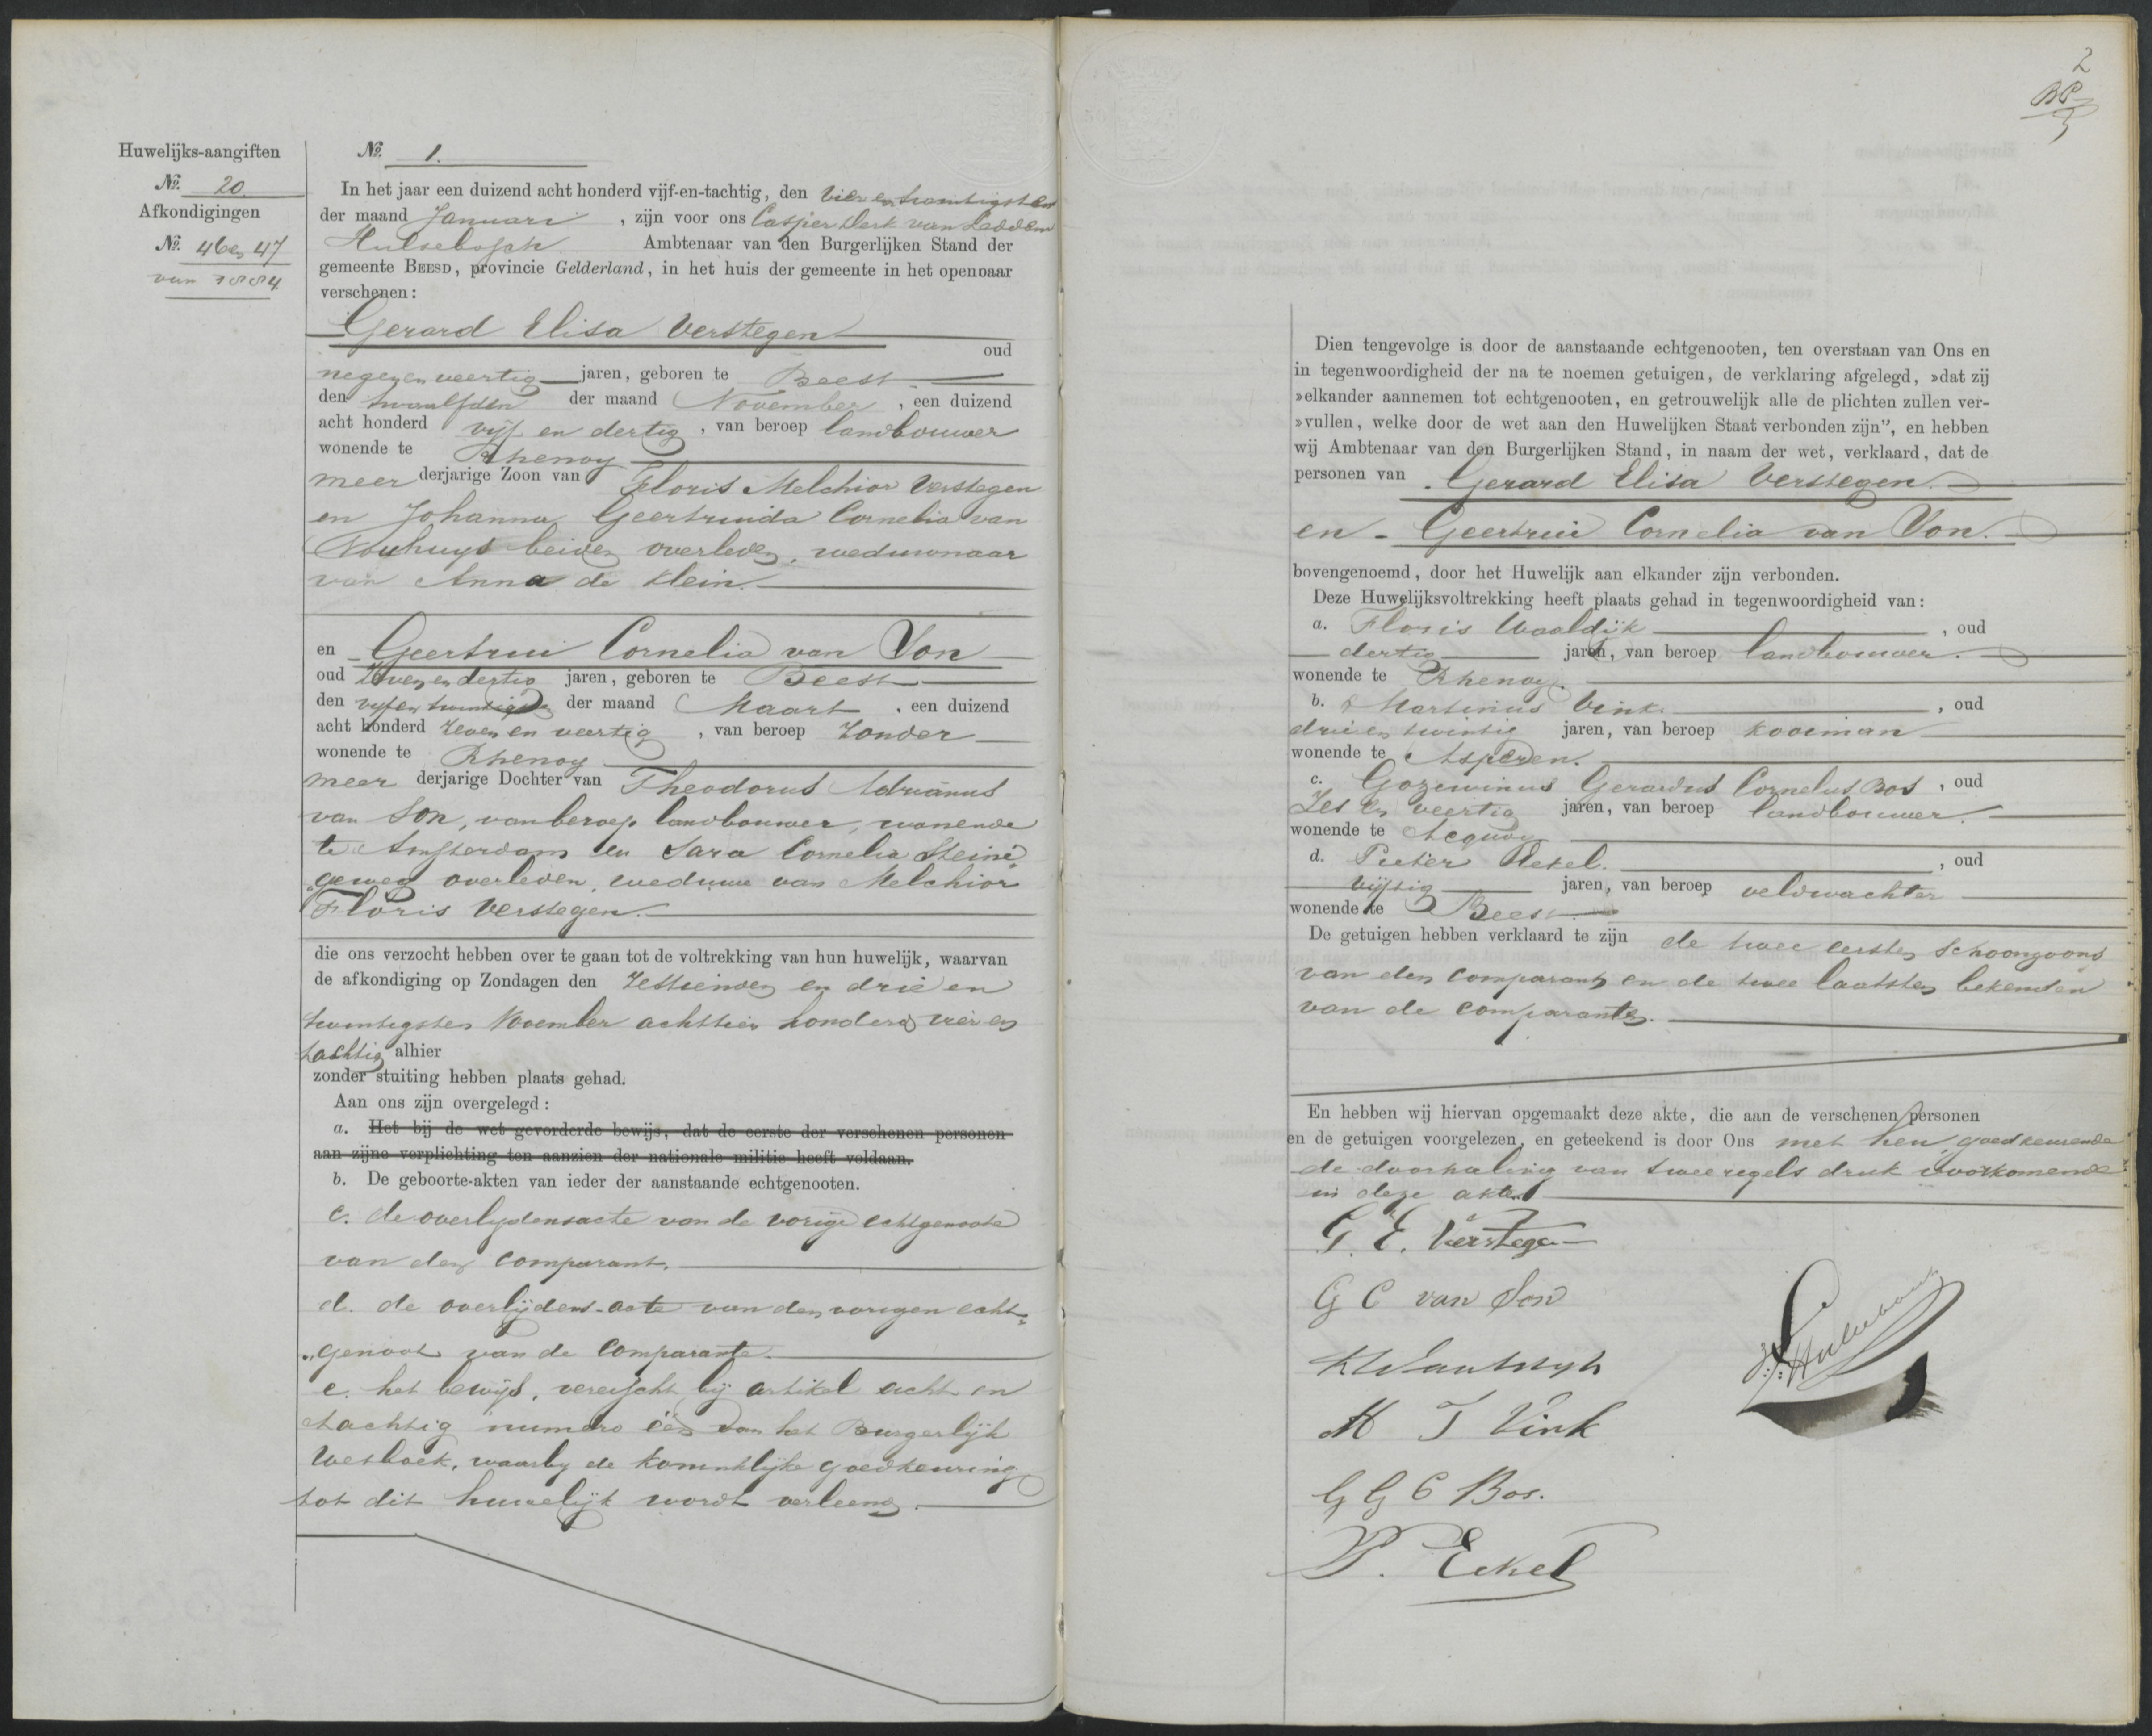 Huwelijks-aangiften
No. 20
Afkondigingen
No. 46 en 47
van 1884
No. 1.
In het jaar een duizend acht honderd vijf-en-tachtig, den vier en twintigsten
der maand Januari , zijn voor ons Casper Derk van Leddem
Hulsebosch Ambtenaar van den Burgerlijken Stand der
gemeente BEESD, provincie Gelderland, in het huis der gemeente in het openbaar
verschenen:
Gerard Elisa Verstegen
oud
negen en veertig jaren, geboren te Beest
den twaalfden der maand November , een duizend
acht honderd vijf en dertig , van beroep landbouwer
wonende te Rhenoy
meer derjarige Zoon van Floris Melchior Verstegen
en Johanna Geertruida Cornelia van
Nouhuys beiden overleden, weduwnaar
van Anna de Klein.
en Geertrui Cornelia van Son
oud Zeven en dertig jaren, geboren te Beest
den vijf en twintigsten der maand Maart , een duizend
acht honderd Zeven en veertig , van beroep Zonder
wonende te Rhenoy
meer derjarige Dochter van Theodorus Adrianus
van Son, van beroep landbouwer, wonende
te Amsterdam en Sara Cornelia Steine
geweg overleden, weduwe van Melchior
Floris Verstegen.
die ons verzocht hebben over te gaan tot de voltrekking van hun huwelijk, waarvan
de afkondiging op Zondagen den Zestienden en drie en
twintigsten November achttien honderd vier en
tachtig alhier
zonder stuiting hebben plaats gehad.
Aan ons zijn overgelegd:
a. Het bij de wet gevorderde bewijs, dat de eerste der verschenen personen
aan zijne verplichting ten aanzien der nationale militie heeft voldaan.
b. De geboorte-akten van ieder der aanstaande echtgenooten.
c. de overlijdensacte van de vorige echtgenoote
van den comparant.
d. de overlijdens-acte van den vorigen echt=
„genoot van de Comparante.
e. het bewijs, vereischt bij artikel acht en
tachtig numero één van het Burgerlijk
Wetboek, waarbij de Koninklijke goedkeuring
tot dit huwelijk wordt verleend.
2
Dien tengevolge is door de aanstaande echtgenooten, ten overstaan van Ons en
in tegenwoordigheid der na te noemen getuigen, de verklaring afgelegd, »dat zij
»elkander aannemen tot echtgenooten, en getrouwelijk alle de plichten zullen ver-
»vullen, welke door de wet aan den Huwelijken Staat verbonden zijn”, en hebben
wij Ambtenaar van den Burgerlijken Stand, in naam der wet, verklaard, dat de
personen van Gerard Elisa Verstegen
en Geertrui Cornelia van Son.
bovengenoemd, door het Huwelijk aan elkander zijn verbonden.
Deze Huwelijksvoltrekking heeft plaats gehad in tegenwoordigheid van:
a. Floris Waaldijk , oud
dertig jaren, van beroep landbouwer.
wonende te Rhenoy.
b. Martinus Vink. , oud
drie en twintig jaren, van beroep kooiman
wonende te Asperen.
c. Gozewinus Gerardus Cornelus Bos , oud
Zes en veertig jaren, van beroep landbouwer.
wonende te Acquoy
d. Pieter Eekel. , oud
vijftig jaren, van beroep veldwachter
wonende te Beest.
De getuigen hebben verklaard te zijn de twee eersten schoonzoons
van den comparant en de twee laatsten bekenden
van de comparanten.
En hebben wij hiervan opgemaakt deze akte, die aan de verschenen personen
en de getuigen voorgelezen, en geteekend is door Ons met hen, goedkeurende
de doorhaling van twee regels druk voorkomende
in deze akte.
G. E. Verstegen
G C van Son
M J Vink
G G C Bos.
P. Eekel